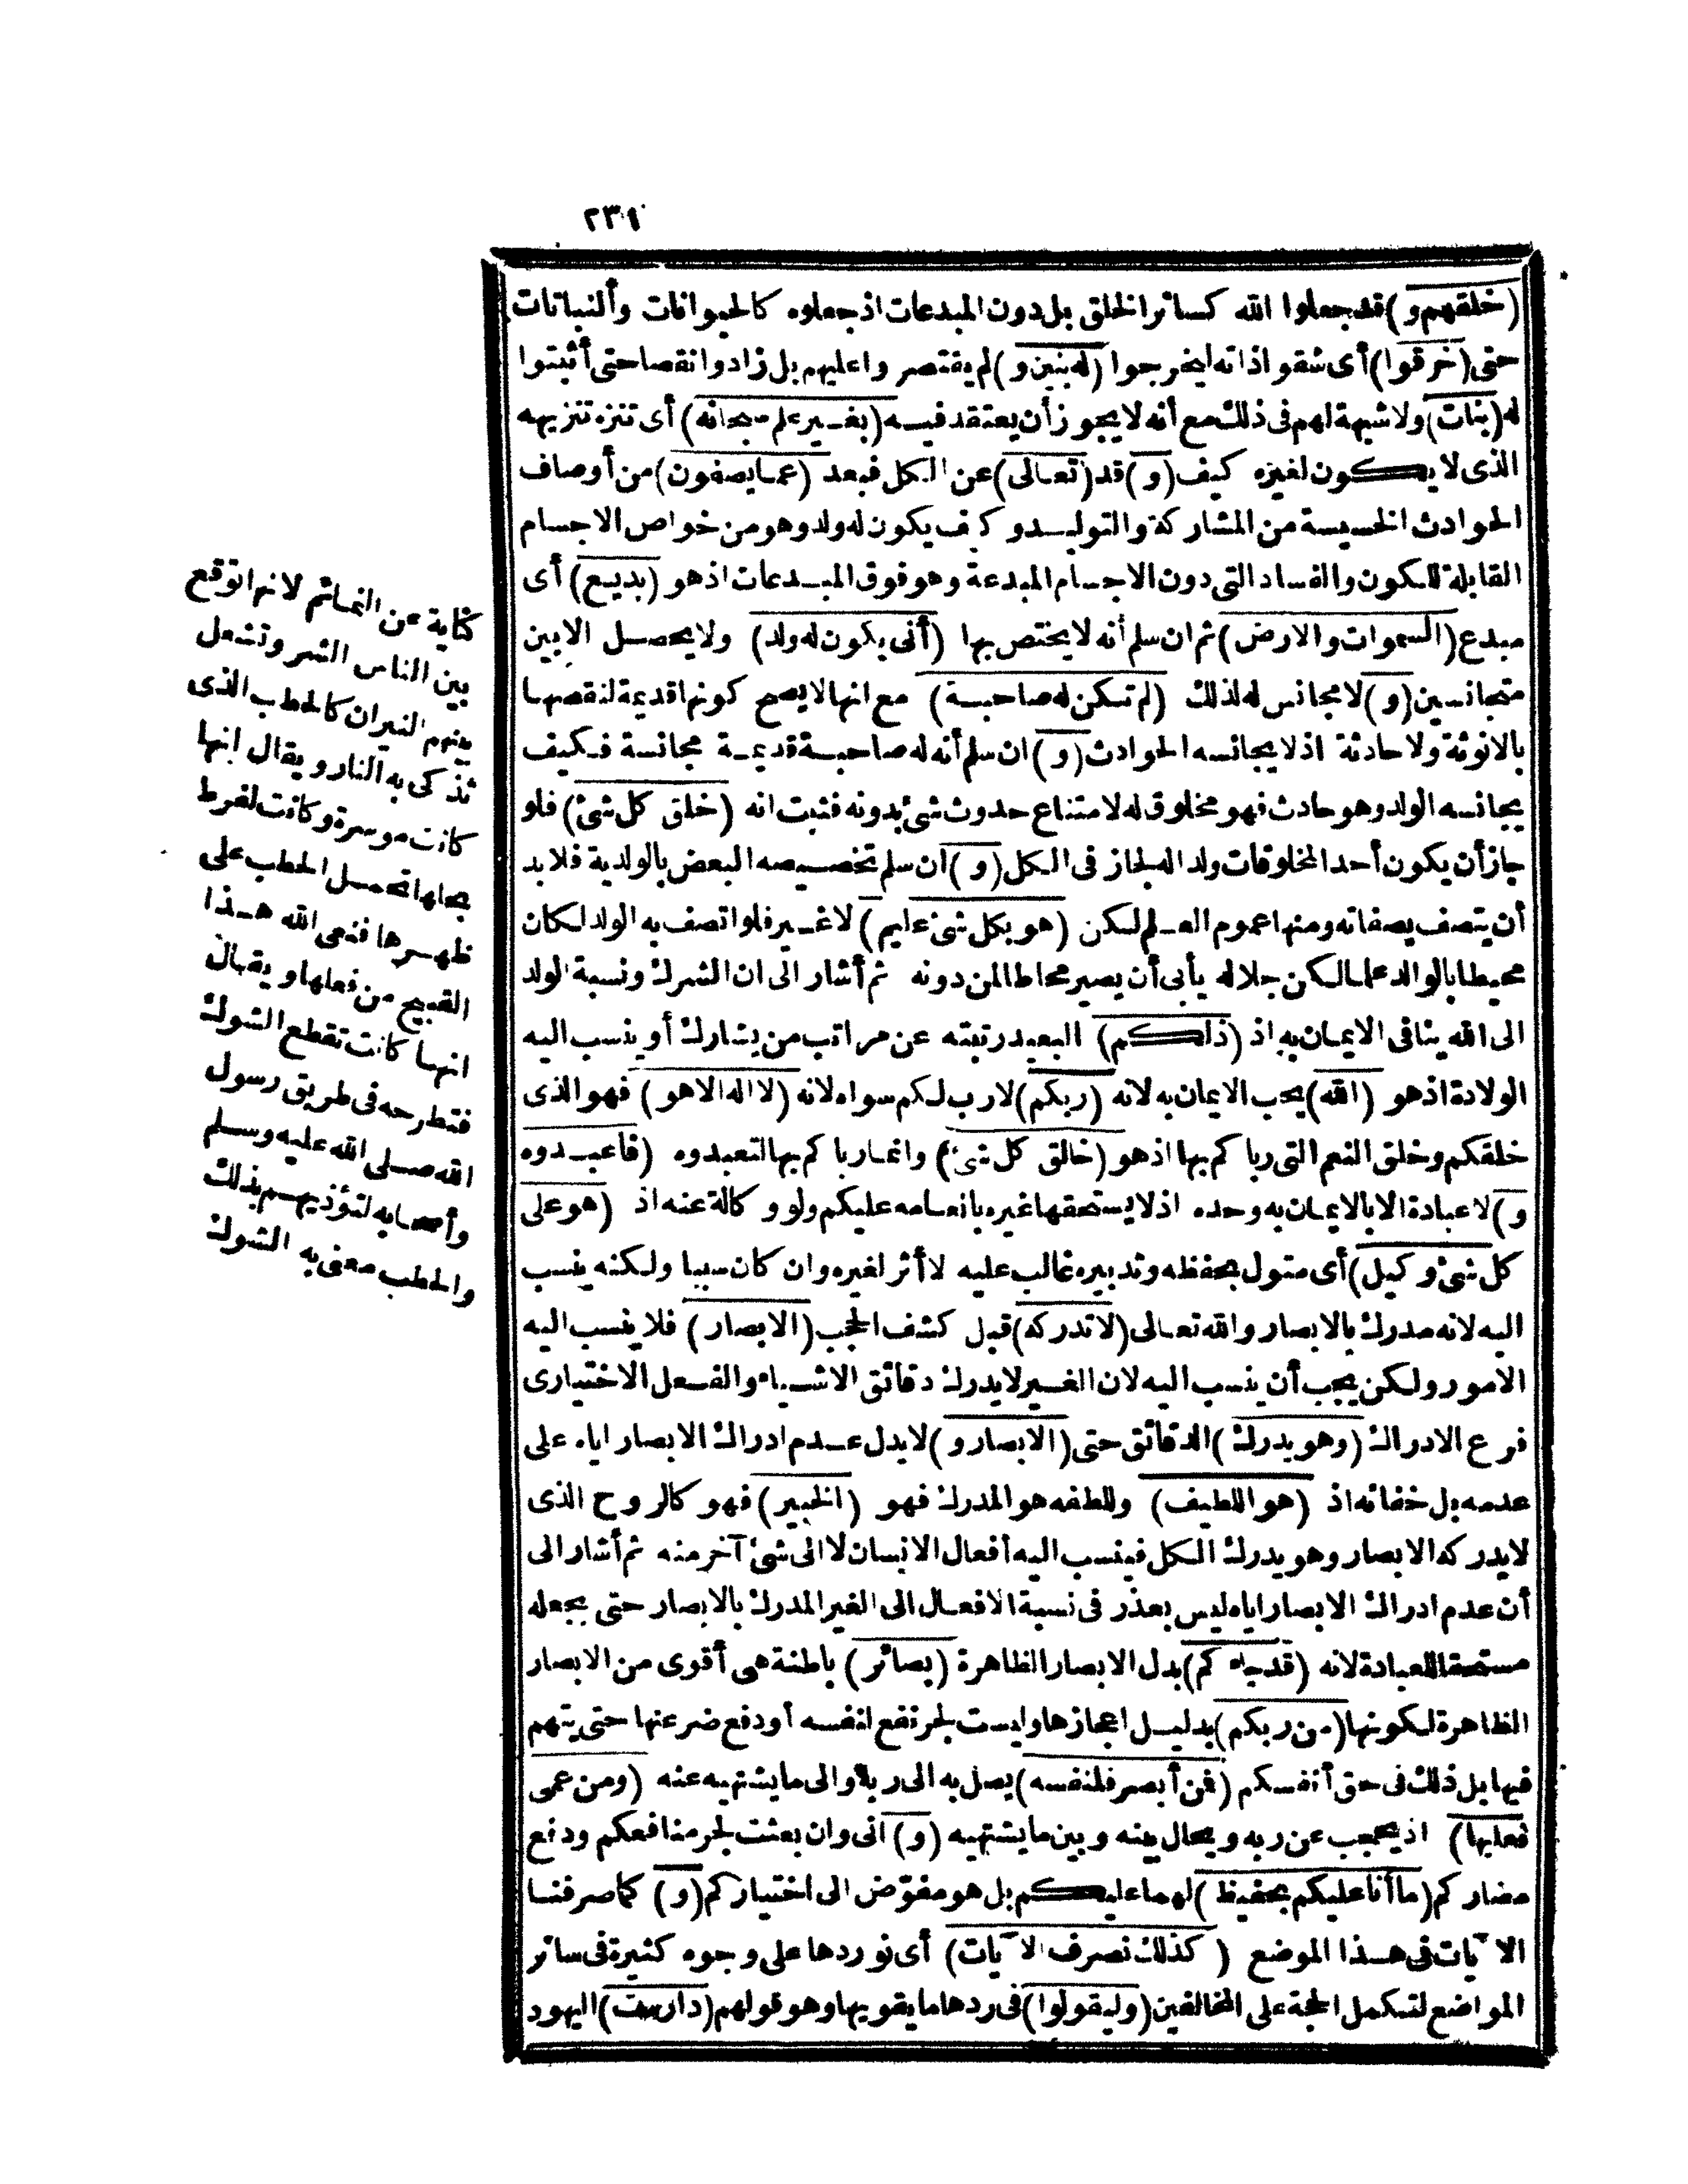 ٢٣١
(خلقهم و) قد جعلوا الله كسائر الخلق بل دون المبدعات اذ جعلوه كالحيوانات والنباتات
حتى (خرقوا) أى شقوا ذاته ليخرجوا (له بنين و) لم يقتصروا عليهم بل زادوا نقصا حتى أثبتوا
له (بنات) ولا شبهة لهم فى ذلك مع أنه لا يجوز أن يعتقد فيه (بغير علم سبحانه) أى تنزه تنزيهه
الذى لا يكون لغيره كيف (و) قد (تعالى) عن الكل فبعد (عما يصفون) من أوصاف
الحوادث الخسيسة من المشاركة والتوليد وكيف يكون له ولد وهو من خواص الاجسام
القابلة للكون والفساد التى دون الاجسام المبدعة وهو فوق المبدعات اذ هو (بديع) أى
مبدع (السموات والارض) ثم ان سلم أنه لا يختص بها (أنى يكون له ولد) ولا يحصل الا بين
متجانسين (و) لا مجانس له لذلك (لم تكن له صاحبة) مع انها لا يصح كونها قديمة لنقصها
بالانوثة ولا حادثة اذ لا يجانسه الحوادث (و) ان سلم أنه له صاحبة قديمة مجانسة فكيف
يجانسه الولد وهو حادث فهو مخلوق له لامتناع حدوث شئ بدونه فثبت انه (خلق كل شئ) فلو
جاز أن يكون أحد المخلوقات ولدا له لجاز فى الكل (و) ان سلم تخصيصه البعض بالولدية فلا بد
أن يتصف بصفاته ومنها عموم العلم لكن (هو بكل شئ عليم) لا غير فلو اتصف به الولد لكان
محيطا بالوالد علما لكن جلاله يأبى أن يصير محاطا لمن دونه ثم أشار الى ان الشرك ونسبة الولد
الى الله ينافى الايمان به اذ (ذلكم) البعيد رتبته عن مراتب من يشارك أو ينسب اليه
الولادة اذ هو (الله) يجب الايمان به لانه (ربكم) لا رب لكم سواه لانه (لا اله الا هو) فهو الذى
خلقكم وخلق النعم التى رباكم بها اذ هو (خالق كل شئ) وانما رباكم بها لتعبدوه (فاعبدوه
و) لا عبادة الا بالايمان به وحده اذ لا يستحقها غيره بانعامه عليكم ولو وكالة عنه اذ (هو على
كل شئ وكيل) أى متول بحفظه وتدبيره غالب عليه لا أثر لغيره وان كان سببا ولكنه ينسب
اليه لانه مدرك بالابصار والله تعالى (لا تدركه) قبل كشف الحجب (الابصار) فلا ينسب اليه
الامور ولكن يجب أن ينسب اليه لان الغير لا يدرك دقائق الاشياء والفعل الاختيارى
فرع الادراك (وهو يدرك) الدقائق حتى (الابصار و) لا يدل عدم ادراك الابصار اياه على
عدمه بل خفائه اذ (هو اللطيف) وللطفه هو المدرك فهو (الخبير) فهو كالروح الذى
لا يدركه الابصار وهو يدرك الكل فينسب اليه أفعال الانسان لا الى شئ آخر منه ثم أشار الى
أن عدم ادراك الابصار اياه ليس بعذر فى نسبة الافعال الى الغير المدرك بالابصار حتى يجعله
مستحقا للعبادة لانه (قد جاءكم) بدل الابصار الظاهرة (بصائر) باطنة هى أقوى من الابصار
الظاهرة لكونها (من ربكم) بدليل اعجازها وليست لجر نفع لنفسه أو دفع ضر عنها حتى يتهم
فيها بل ذلك فى حق أنفسكم (فمن أبصر فلنفسه) يصل به الى ربه والى ما يشتهيه عنه (ومن عمى
فعليها) اذ يحجب عن ربه ويحال بينه وبين ما يشتهيه (و) انى وان بعثت لجر منافعكم ودفع
مضاركم (ما أنا عليكم بحفيظ) لهما عليكم بل هو مفوّض الى اختياركم (و) كما صرفنا
الآيات فى هذا الموضع (كذلك نصرف الآيات) أى نوردها على وجوه كثيرة فى سائر
المواضع لتكمل الحجة على المخالفين (وليقولوا) فى ردها ما يقويها وهو قولهم (دارست) اليهود
كناية عن النمائم لانها توقع
بين الناس الشر وتشعل
بينهم النيران كالحطب الذى
تذكى به النار ويقال انها
كانت موسرة وكانت لفرط
بخلها تحمل الحطب على
ظهرها فنعى الله هذا
القبيح من فعلها ويقال
انها كانت تقطع الشوك
فتطرحه فى طريق رسول
الله صلى الله عليه وسلم
وأصحابه لتؤذيهم بذلك
والحطب معنى به الشوك